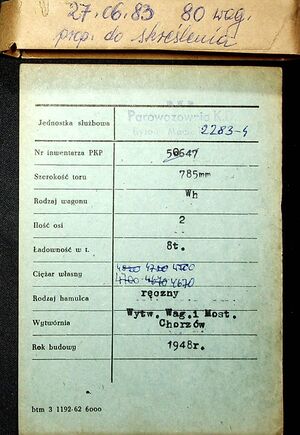 27.06.83 80 wag.
prop. do skreślenia
PKP
Jednostka służbowa Parowozownia Kl.
Bytom 2283-4
Nr inwentarza PKP 50647
Szerokość toru 785mm
Rodzaj wagonu Wh
Ilość osi 2
Ładowność w t. 8t.
4700 4700
Ciężar własny 4700 4670 4670
Rodzaj hamulca ręczny
Wytwórnia Wytw. Wag.i Most.
Chorzów
Rok budowy 1948r.
btm 3 1192-62 6000